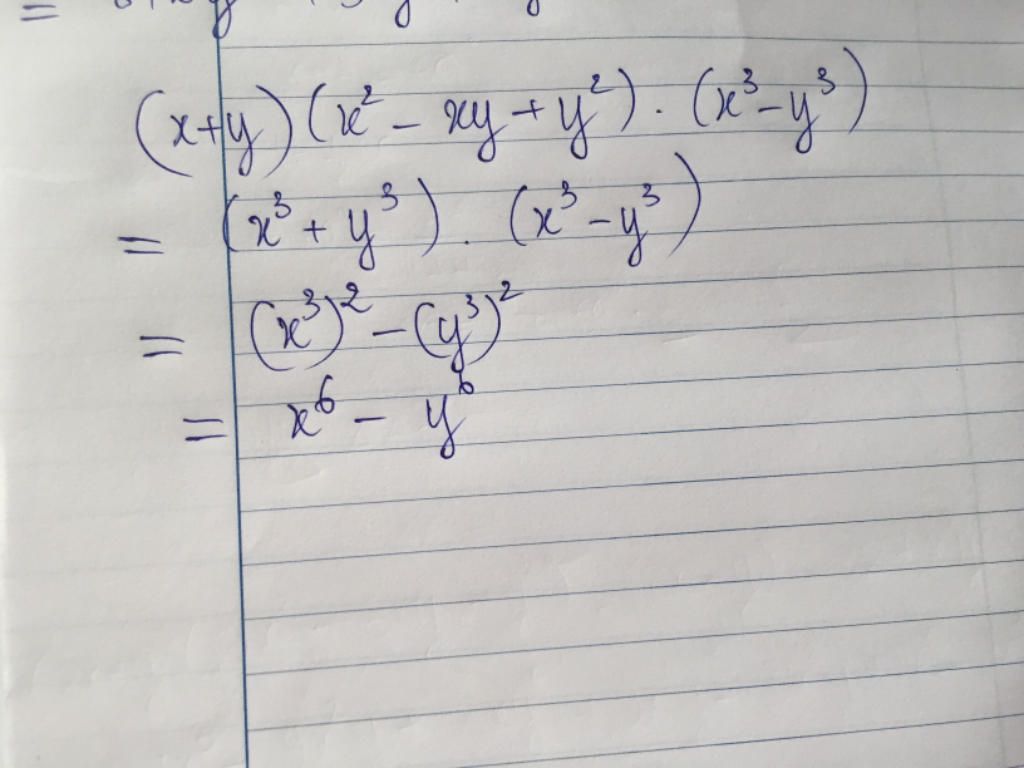 =
(x+y)(x² - xy + y²) . (x³ - y³)
= (x³ + y³) . (x³ - y³)
= (x³)² - (y³)²
= x⁶ - y⁶